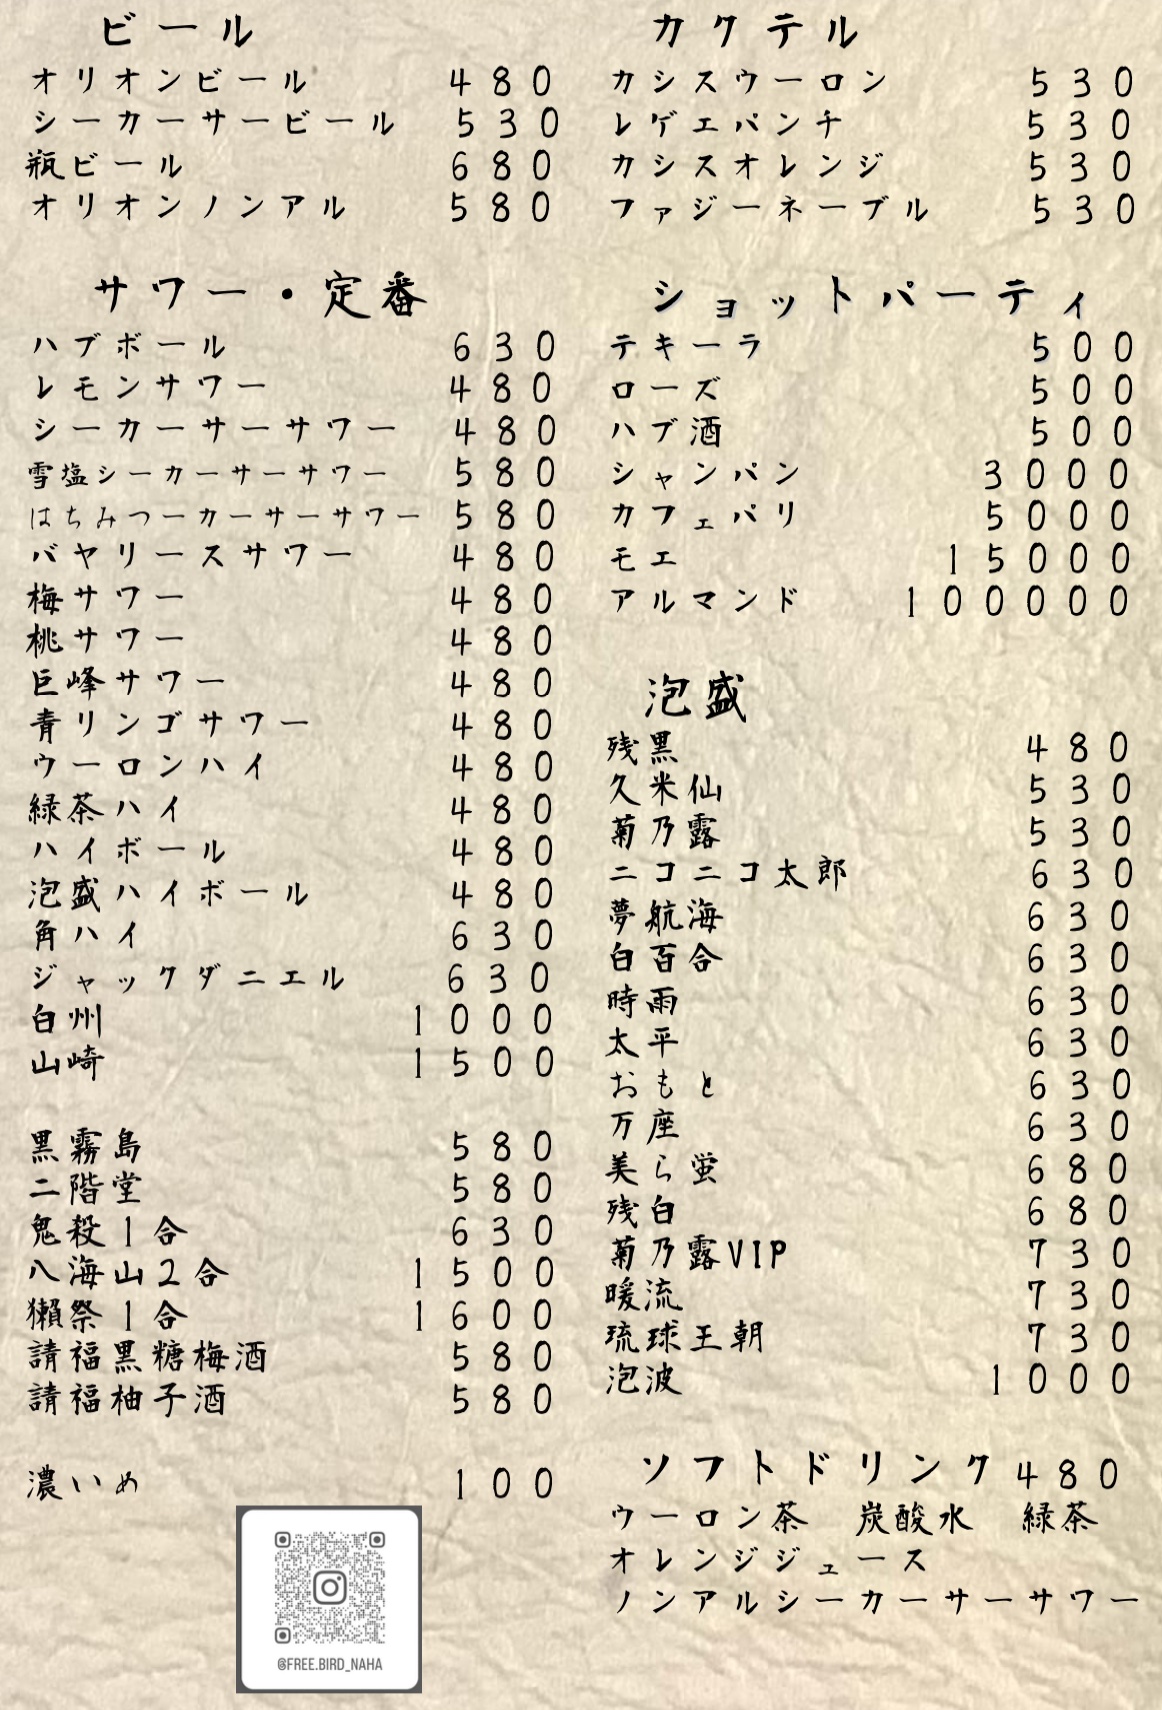 ビール
オリオンビール 480
シーカーサービール 530
瓶ビール 680
オリオンノンアル 580
サワー・定番
ハブボール 630
レモンサワー 480
シーカーサーサワー 480
雪塩シーカーサーサワー 580
はちみつーカーサーサワー 580
バヤリースサワー 480
梅サワー 480
桃サワー 480
巨峰サワー 480
青リンゴサワー 480
ウーロンハイ 480
緑茶ハイ 480
ハイボール 480
泡盛ハイボール 480
角ハイ 630
ジャックダニエル 630
白州 1000
山崎 1500
黒霧島 580
二階堂 580
鬼殺1合 630
八海山2合 1500
獺祭1合 1600
請福黒糖梅酒 580
請福柚子酒 580
濃いめ 100
@FREE.BIRD_NAHA
カクテル
カシスウーロン 530
レゲエパンチ 530
カシスオレンジ 530
ファジーネーブル 530
ショットパーティ
テキーラ 500
ローズ 500
ハブ酒 500
シャンパン 3000
カフェパリ 5000
モエ 15000
アルマンド 100000
泡盛
残黒 480
久米仙 530
菊乃露 530
ニコニコ太郎 630
夢航海 630
白百合 630
時雨 630
太平 630
おもと 630
万座 630
美ら蛍 680
残白 680
菊乃露VIP 730
暖流 730
琉球王朝 730
泡波 1000
ソフトドリンク 480
ウーロン茶 炭酸水 緑茶
オレンジジュース
ノンアルシーカーサーサワー